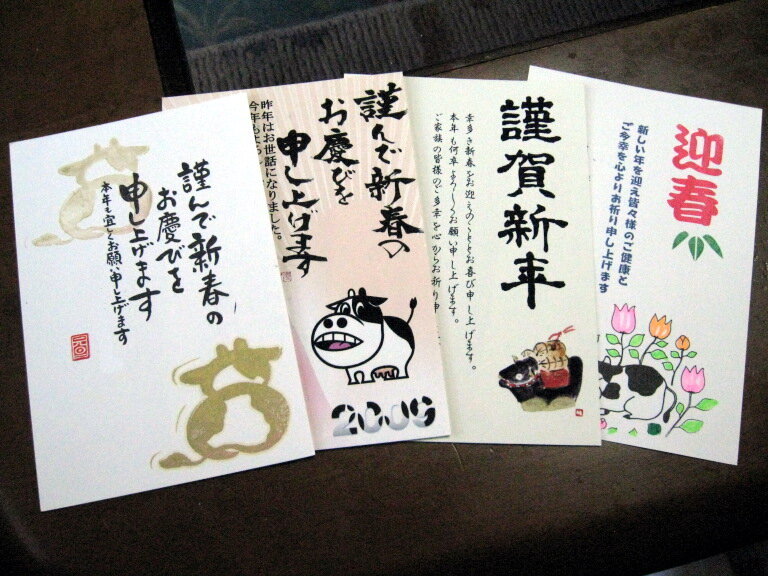 謹んで新春の
お慶びを
申し上げます
本年も宜しくお願い申し上げます
謹んで新春の
お慶びを
申し上げます
昨年はお世話になりました。
今年もよろし
2009
謹賀新年
幸多き新春をお迎えのこととお喜び申し上げます。
本年も何卒よろしくお願い申し上げます。
ご家族の皆様のご多幸を心からお祈り申
迎春
新しい年を迎え皆々様のご健康と
ご多幸を心よりお祈り申し上げます